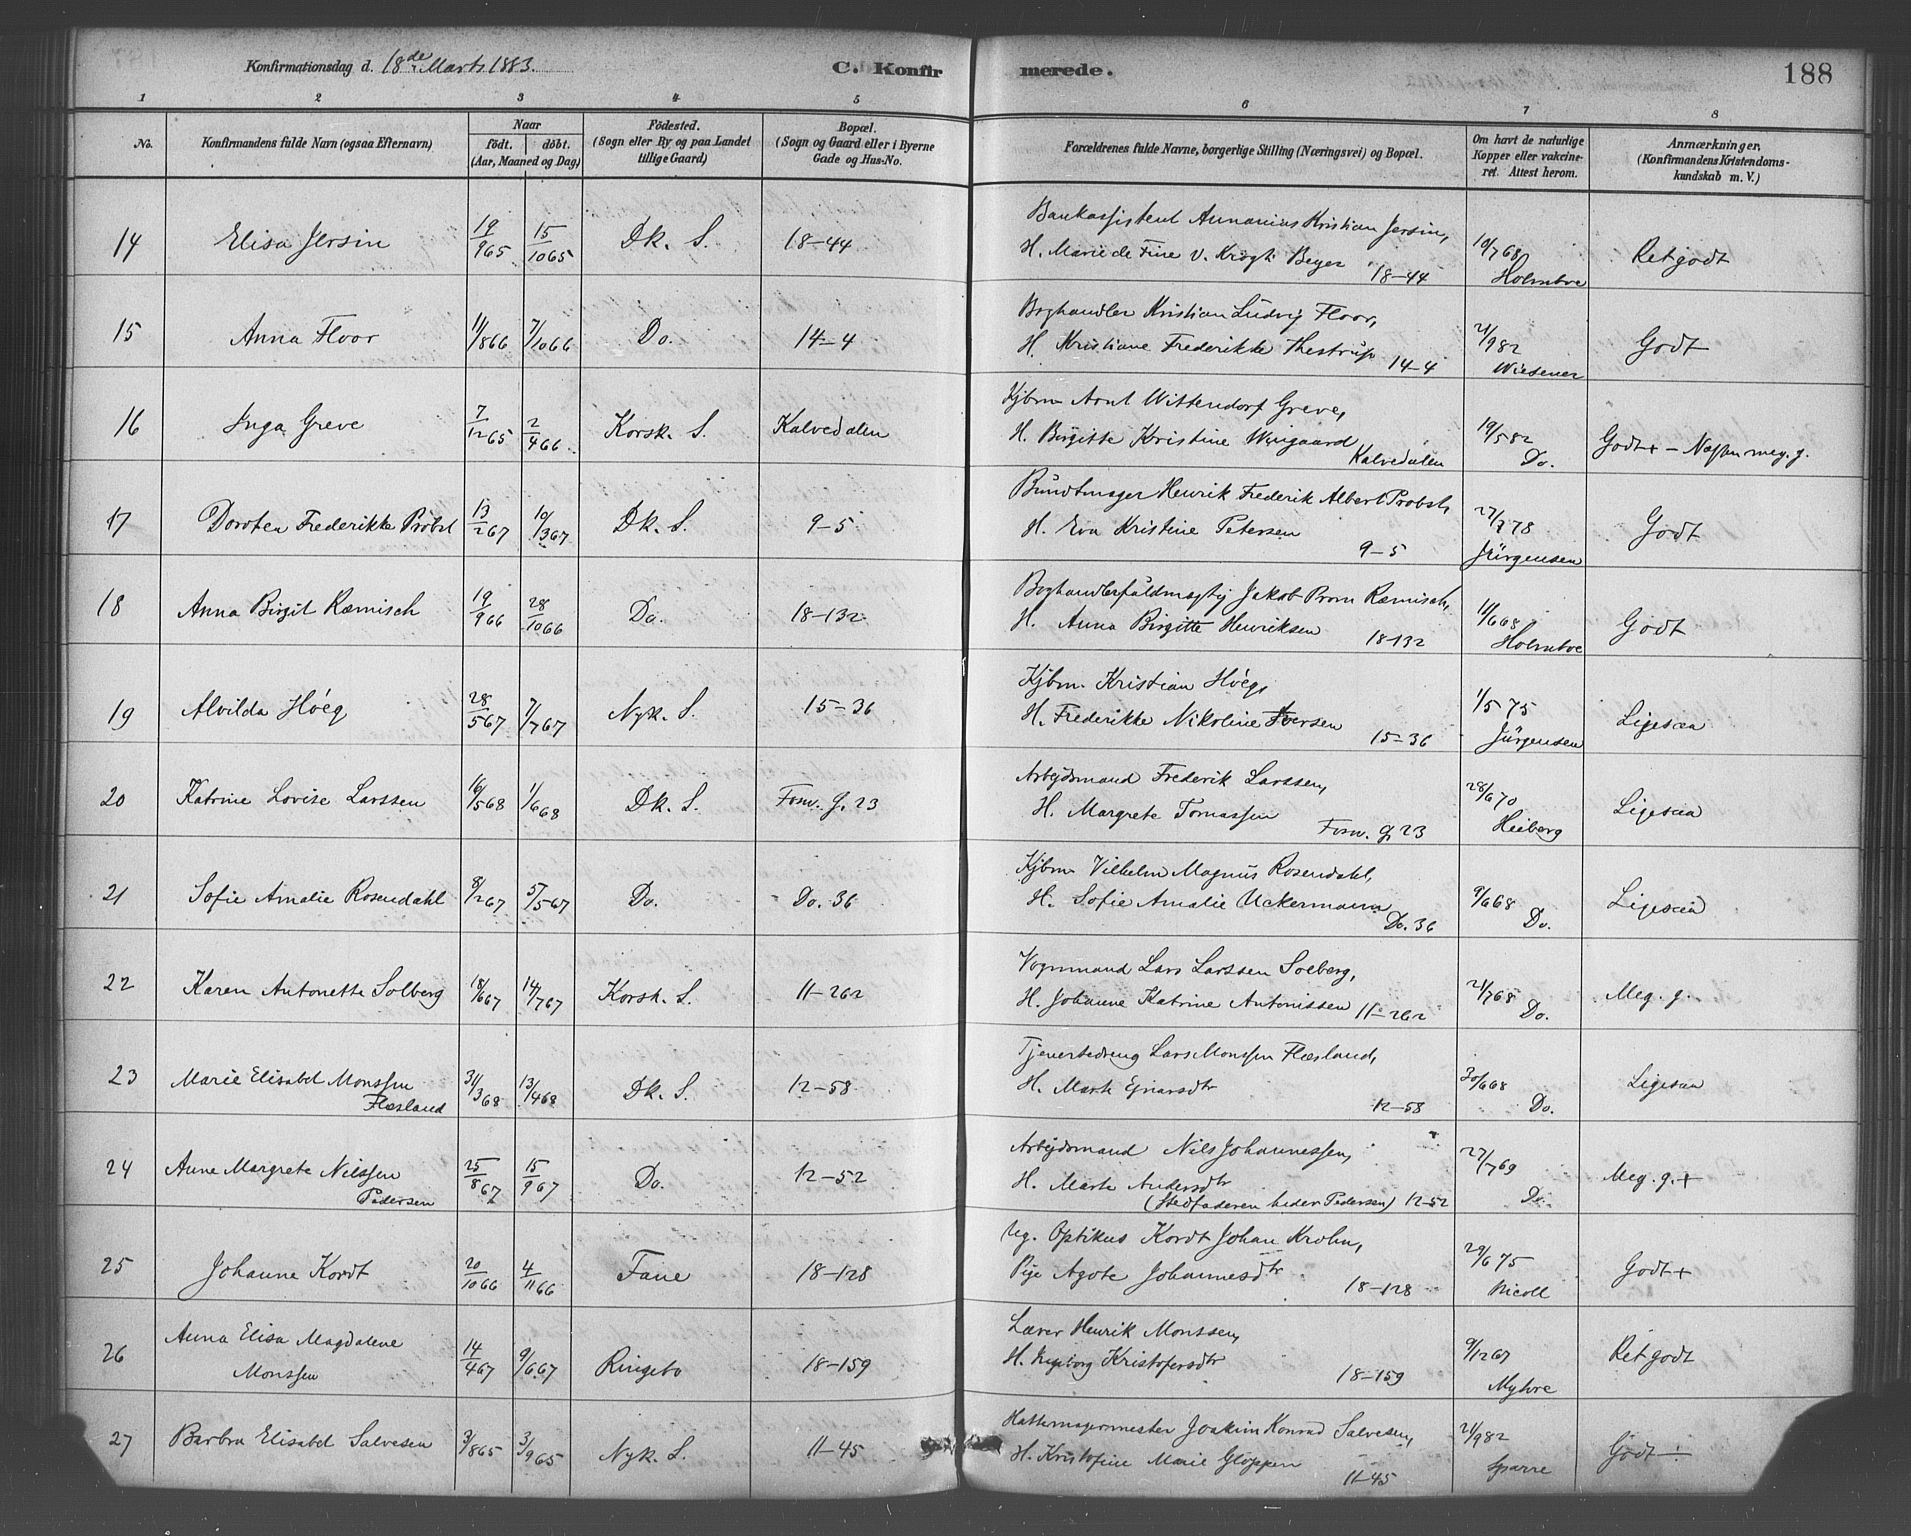 Konfirmationsdag d. 18de Marts 1883.
C. Konfirmerede.
188
1 2 3 4 5 6 7 8
No.
Konfirmandens fulde Navn (ogsaa Efternavn)
Naar
födt. döbt.
(Aar, Maaned og Dag)
Födested.
(Sogn eller By og paa Landet
tillige Gaard)
Bopæl.
(Sogn og Gaard eller i Byerne
Gade og Hus-No.
Forældrenes fulde Navne, borgerlige Stilling (Næringsvei) og Bopæl.
Om havt de naturlige
Kopper eller vakcine-
ret. Attest herom.
Anmærkninger,
(Konfirmandens Kristendoms-
kundskab m. V.)
14 Elisa Jersin 19/9 65 15/10 65 Dk. S. 18-44
Bankassistent Annanias Kristian Jersin,
H. Marie de Fine v. Krogh Beyer 18-44
10/7 68 Holmboe
Ret godt
15 Anna Floor 11/8 66 7/10 66 Do. 14-4
Boghandler Kristian Ludvig Floor,
H. Kristiane Frederikke Thestrup 14-4
21/9 82 Wiesener
Godt
16 Inga Greve 7/12 65 2/4 66 Korsk. S. Kalvedalen
Kjbm. Arnt Wittendorf Greve,
H. Birgitte Kristine Wiigaard Kalvedalen
19/5 82 Do.
Godt+ - Næsten meg. g.
17 Dorotea Frederikke Pröbst 13/2 67 10/3 67 Dk. S. 9-5
Bundtmager Henrik Frederik Albert Probst,
H. Eva Kristine Petersen 9-5
27/7 78 Jürgensen
Godt
18 Anna Birgit Ræmisch 19/9 66 28/10 66 Do. 18-132
Boghandlerfuldmægtig Jakob Prom Ræmisch,
H. Anna Birgitte Henriksen 18-132
11/6 68 Holmboe
Godt
19 Alvilda Höeg 28/5 67 7/7 67 Nyk. S. 15-36
Kjbm. Kristian Höeg,
H. Frederikke Nikoline Iversen 15-36
1/5 75 Jürgensen
Ligesaa
20 Katrine Lovise Larssen 16/5 68 1/6 68 Dk. S. Fosw. g. 23
Arbejdsmand Frederik Larssen,
H. Margrete Tomassen Fosw. g. 23
28/6 70 Heiberg
Ligesaa
21 Sofie Amalie Rosendahl 8/2 67 5/5 67 Do. Do. 36
Kjbm. Vilhelm Magnus Rosendahl,
H. Sofie Amalie Uckermann Do. 36
9/6 68 Do.
Ligesaa
22 Karen Antonette Solberg 18/6 67 14/7 67 Korsk. S. 11-262
Vognmand Lars Larssen Solberg,
H. Johanne Katrine Antonissen 11-262
21/7 68 Do.
Meg. g.
23 Marie Elisabet Monssen
Flæsland 31/3 68 13/4 68 Dk. S. 12-58
Tjenestedreng Lars Monssen Flæsland,
H. Marte Ejnarsdtr 12-58
30/6 68 Do.
Ligesaa
24 Anne Margrete Nilssen
Pedersen 25/8 67 15/9 67 Do. 12-52
Arbejdsmand Nils Johannessen,
H. Marte Andersdtr
(Stedfaderen heder Pedersen) 12-52
27/7 69 Do.
Meg. g.+
25 Johanne Kordt 20/10 66 4/11 66 Fane 18-128
Ug. Optikus Kordt Johan Krohn,
Pige Agote Johannesdtr 18-128
29/6 75 Nicoll
Godt+
26 Anna Elisa Magdalene
Monssen 14/4 67 9/6 67 Ringebo 18-159
Lærer Henrik Monssen,
H. Ingeborg Kristofersdtr 18-159
9/12 67 Myhre
Ret godt
27 Barbra Elisabet Salvesen 3/8 65 3/9 65 Nyk. S. 11-45
Hattemagermester Joakim Konrad Salvesen,
H. Kristofine Marie Gloppen 11-45
21/9 82 Sparre
Godt÷